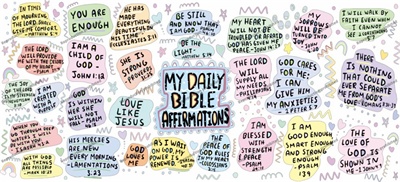 IN TIMES
OF MOURNING,
THE LORD SHALL
GIVE ME COMFORT.
MATTHEW
YOU ARE
ENOUGH
HE HAS
MADE
EVERYTHING
BEAUTIFUL IN
ITS TIME
ECCLESIASTES 3:11
BE STILL AND
KNOW THAT
I AM GOD.
PSALM
MY HEART
WILL NOT BE
TROUBLED OR AFRAID
GOD HAS GIVEN ME
PEACE
JOHN
MY
SORROWS
WILL BE
TURNED
INTO JOY
JOHN
I WILL WALK BY
FAITH EVEN WHEN
I CANNOT
SEE
2 CORINTHIANS
THE LORD
WILL PROVIDE
ME WITH THE DESIRES
OF MY HEART
PSALM
I AM A
CHILD OF
GOD -
JOHN 1:12
SHE IS
STRONG
PROVERBS
BE THE
LIGHT
MATTHEW
THE JOY OF
THE LORD
IS MY
STRENGTH
I AM
CREATED
WITH A
PURPOSE
GOD IS
WITHIN HER
SHE WILL
NOT FALL
PSALM
LOVE
LIKE
JESUS
MY DAILY
BIBLE
AFFIRMATIONS
THE LORD
WILL
SUPPLY ALL
MY NEEDS
PHILIPPIANS
GOD
CARES FOR
ME; I
CAN
GIVE HIM
MY ANXIETIES
1 PETER
THERE IS
NOTHING
THAT COULD
EVER SEPARATE
ME FROM GOD'S
LOVE
ROMANS
WHEN YOU
GO THROUGH
DEEP
WATERS
I WILL BE
WITH YOU
ISAIAH
WITH GOD
ALL THINGS
ARE POSSIBLE
MARK
HIS MERCIES
ARE NEW
EVERY MORNING
-LAMENTATIONS
3:23
GOD
LOVES
ME
AS I WAIT
ON GOD, MY
POWER IS
RENEWED
ISAIAH
THE
PEACE OF
GOD RULES
IN MY HEART
I AM
BLESSED
WITH
STRENGTH
& PEACE
PSALM
I AM
GOOD ENOUGH
SMART ENOUGH
AND STRONG
ENOUGH
- PSALM
139:4
THE
LOVE OF
GOD IS
SHOWN IN
ME - 1 JOHN